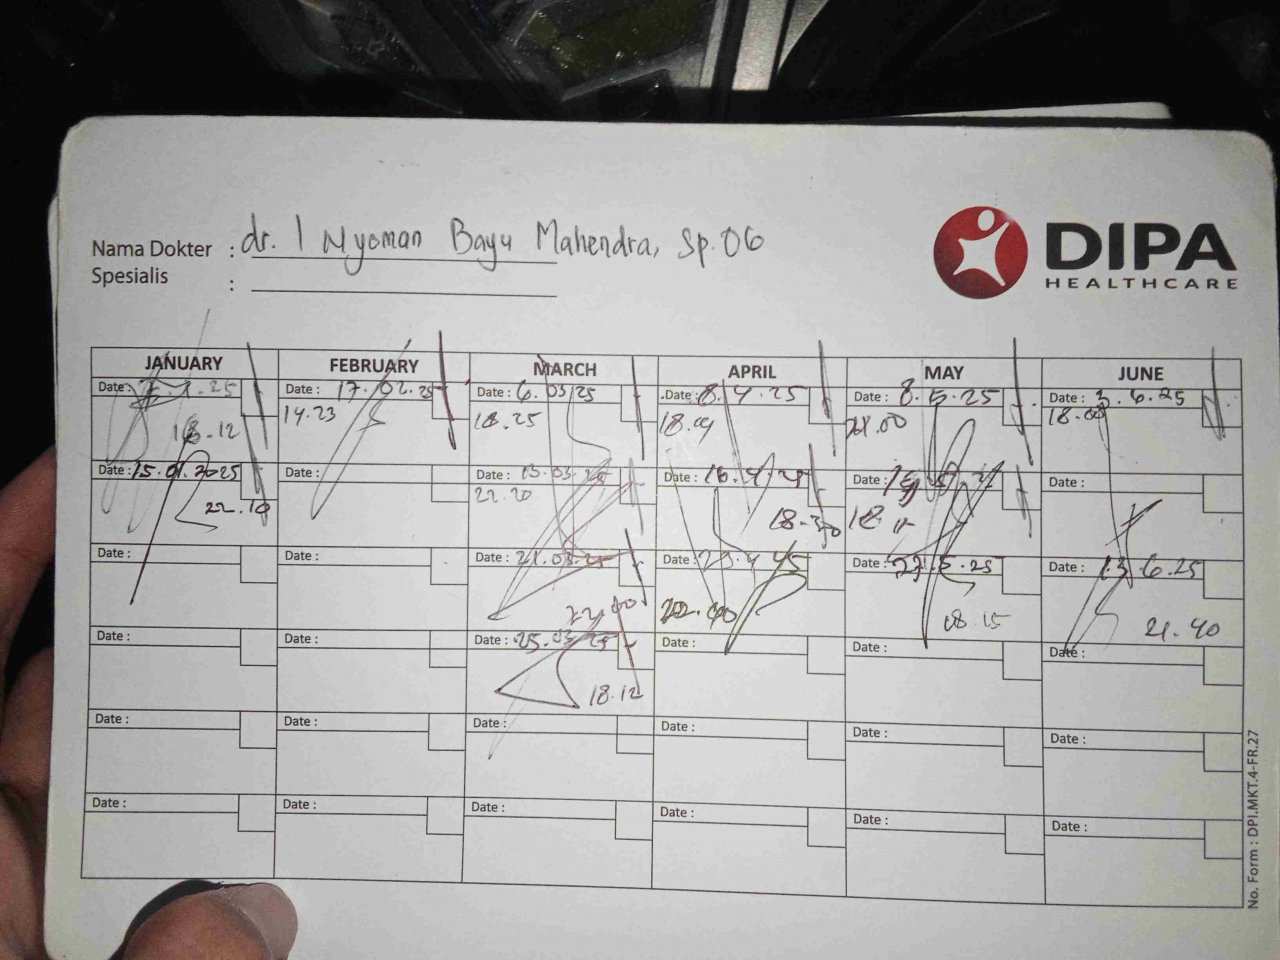 DIPA
HEALTHCARE
Nama Dokter : dr. I Nyoman Bayu Mahendra, Sp.OG
Spesialis :
JANUARY FEBRUARY MARCH APRIL MAY JUNE
Date: 7.1.25 Date : 17.02.25 Date : 6.03.25 Date : 8.4.25 Date : 8.5.25 Date : 3.6.25
18.12 14.23 18.25 18.09 21.00 18.00
Date : 15.01.2025 Date : Date : 13.03.25 Date : 16.4.25 Date : Date :
22.10 22.20 18.30
Date : Date : Date : 21.03.25 Date : 23.4.25 Date : 27.5.25 Date : 13.6.25
22.00 22.40 18.15 21.40
Date : Date : Date : 25.03.25 Date : Date : Date :
18.12
Date : Date : Date : Date : Date : Date :
Date : Date : Date : Date : Date : Date :
No. Form : DPI.MKT.4-FR.27